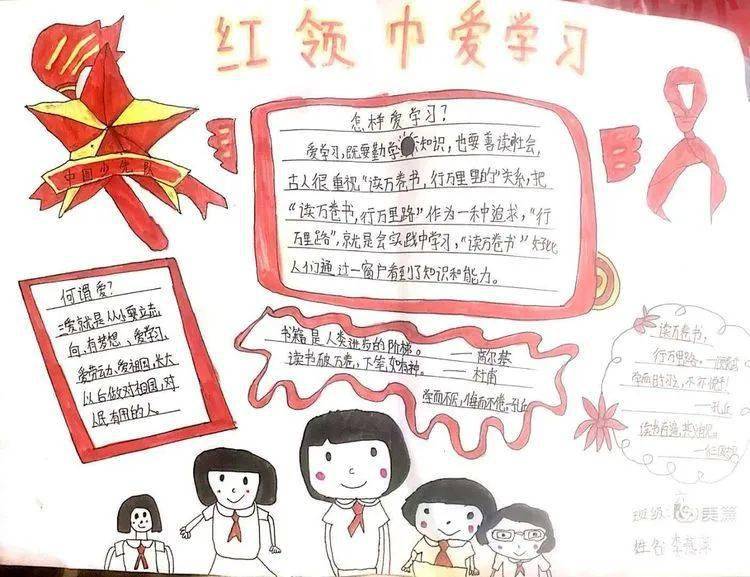 红领巾爱学习
中国少先队
怎样爱学习?
爱学习,既要勤学知识,也要善读社会,
古人很重视“读万卷书,行万里路”的关系,把
“读万卷书,行万里路”作为一种追求,“行
万里路”,就是会实践中学习,“读万卷书”好比
人们通过一窗户看到了知识和能力。
何谓爱?
三爱就是从小要立志
向,有梦想,爱学习,
爱劳动、爱祖国,长大
以后做对祖国,对
人民有用的人。
书籍是人类进步的阶梯。——高尔基
读书破万卷,下笔如有神。——杜甫
学而不厌,诲而不倦。孔丘
读万卷书,
行万里路。
学而时习,不亦
——孔丘
读书百遍,其义自见。
班级:六 美篇
姓名:李